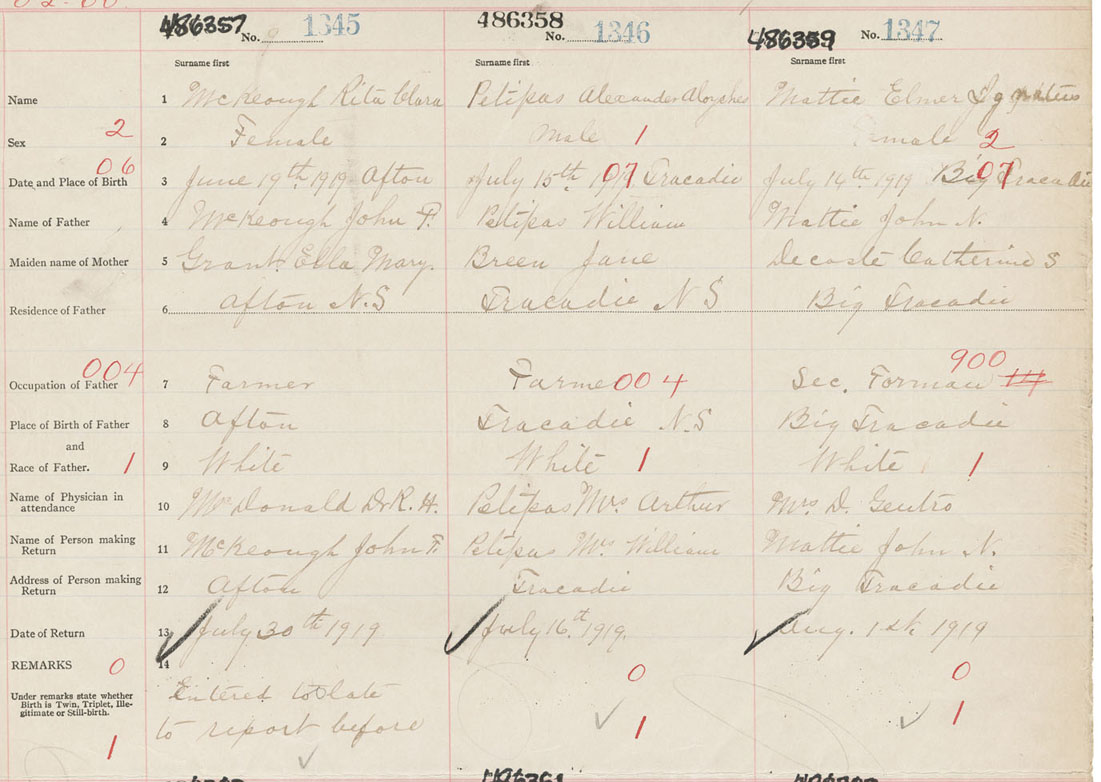 486357 No. 1345 486358 No. 1346 486359 No. 1347
Surname first Surname first Surname first
Name 1 McKeough Rita Clara Petipas Alexander Aloyshes Mattie Elmer
Sex 2 2 Female Male 1 male 2
06
Date and Place of Birth 3 June 19th 919 Afton July 15th 07 Tracadie July 14th 1919 Big 07 Tracadie
Name of Father 4 McKeough John F. Petipas William Mattie John N.
Maiden name of Mother 5 Grant Ella Mary. Breen Jane Decoste Catherine S
Residence of Father 6 Afton N.S Tracadie N S Big Tracadie
004 900
Occupation of Father 7 Farmer Farme 004 Sec. Forman 14
Place of Birth of Father 8 Afton Tracadie N.S Big Tracadie
and
Race of Father. 1 9 White White 1 White 1
Name of Physician in
attendance 10 McDonald Dr R. H. Petipas Mrs Arthur Mrs D.
Name of Person making
Return 11 McKeough John F. Petipas Mrs William Mattie John N.
Address of Person making
Return 12 Afton Tracadie Big Tracadie
Date of Return 13 July 30th 1919 July 16th 1919. Aug. 1st 1919
REMARKS 0 14 0 0
Under remarks state whether
Birth is Twin, Triplet, Ille-
gitimate or Still-birth.
1 Entered to late 1 1
to report before